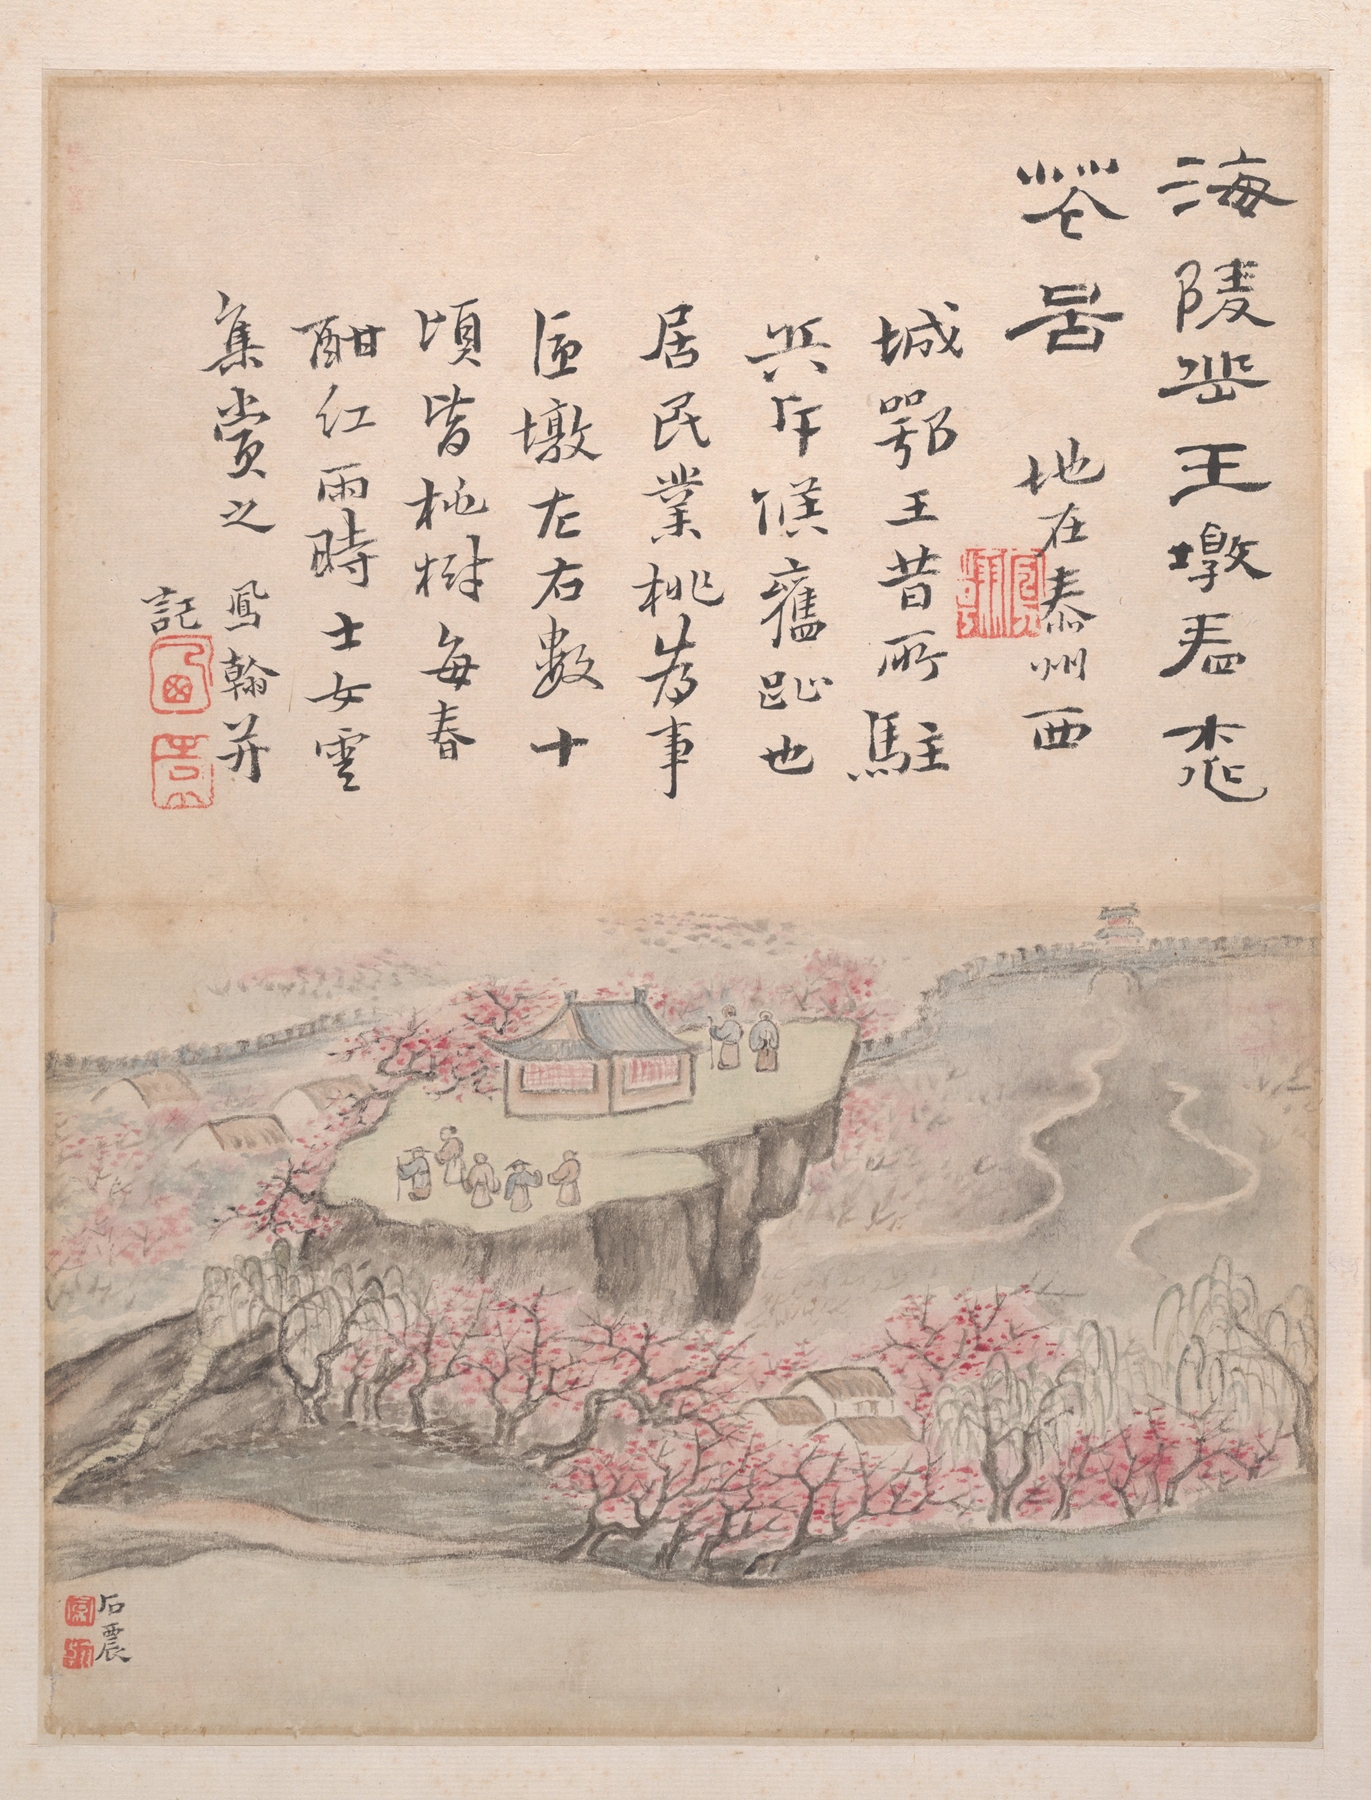 海陵岳王墩看桃
花圖 地在泰州西
城鄂王昔所駐
兵斥候舊趾也
居民業桃為事
逼墩左右數十
頃皆桃樹每春
酣紅雨時士女雲
集賞之 鳳翰并
記
石震